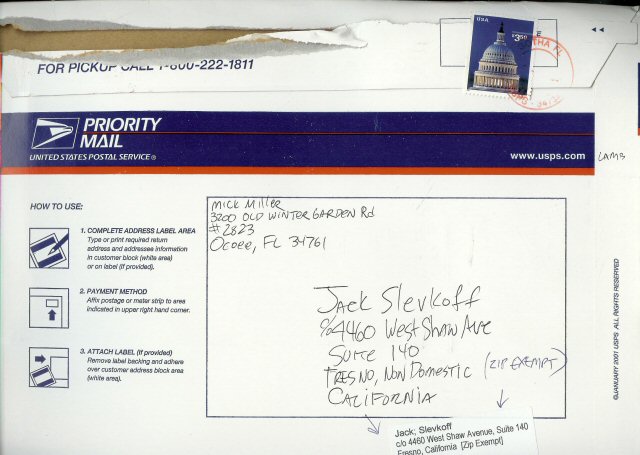 FOR PICKUP CALL 1-800-222-1811
USA
$3.50
THA FL
PRIORITY
MAIL
UNITED STATES POSTAL SERVICE®
www.usps.com
LAMB
HOW TO USE:
1. COMPLETE ADDRESS LABEL AREA
Type or print required return
address and addressee information
in customer block (white area)
or on label (if provided).
2. PAYMENT METHOD
Affix postage or meter strip to area
indicated in upper right hand corner.
3. ATTACH LABEL (if provided)
Remove label backing and adhere
over customer address block area
(white area).
Mick Miller
3200 OLD WINTER GARDEN Rd
#2823
Ocoee, FL 34761
Jack Slevkoff
c/o 4460 West Shaw Ave
SUITE 140
FRESNO, NON DOMESTIC (ZIP EXEMPT)
CALIFORNIA
Jack; Slevkoff
c/o 4460 West Shaw Avenue, Suite 140
Fresno, California [Zip Exempt]
©JANUARY 2001 USPS ALL RIGHTS RESERVED